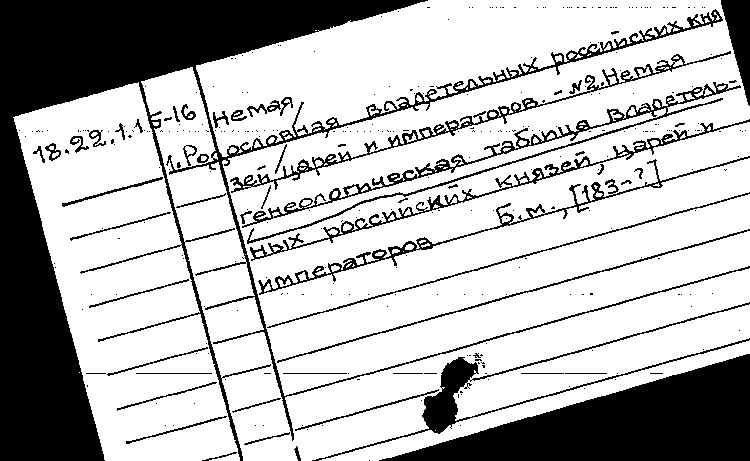 18.22.1.1 5-16 Немая
1. Родословная владетельных российских кня
зей, царей и императоров. - №2. Немая
генеологическая таблица владетель-
ных российских князей, царей и
императоров Б.м., [183-?]